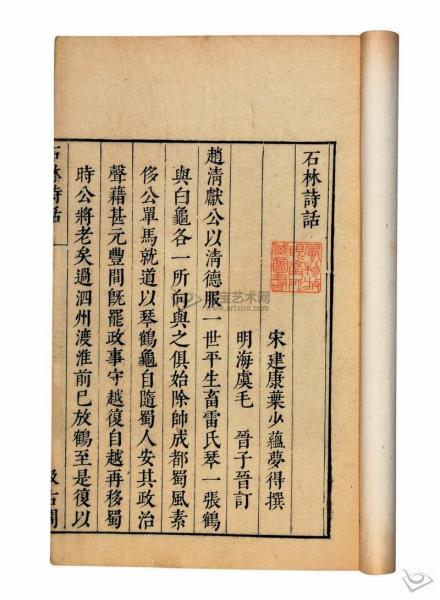 石林詩話
宋建康葉少蘊夢得撰
明海虞毛　晉子晉訂
趙清獻公以清德服一世平生畜雷氏琴一張鶴
與白龜各一所向與之俱始除帥成都蜀風素
侈公單馬就道以琴鶴龜自隨蜀人安其政治
聲藉甚元豐間旣罷政事守越復自越再移蜀
時公將老矣過泗州渡淮前已放鶴至是復以
石林詩話
汲古閣
艺术网
www.artxun.com